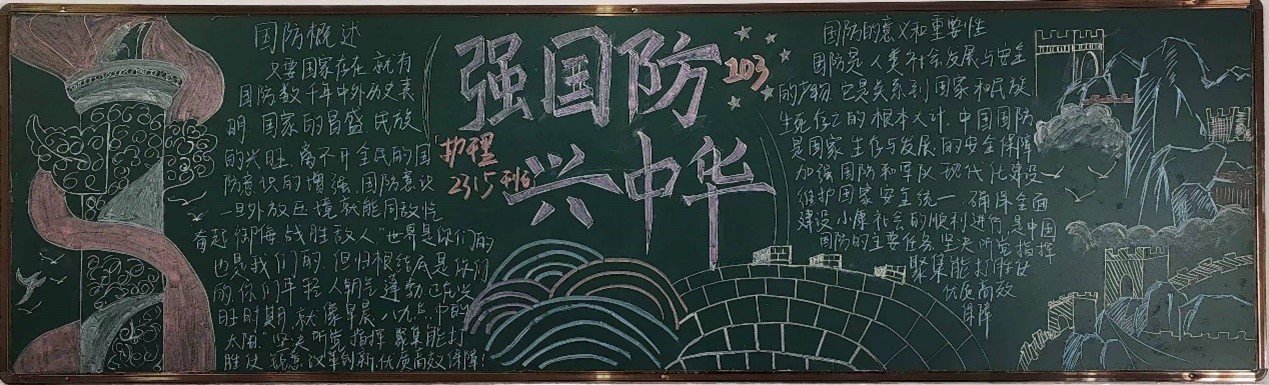 国防概述
只要国家存在就有
国防数千年中外历史表
明国家的昌盛民族
的兴旺,离不开全民的国
防意识的增强,国防意识
一旦外放区境就能同敌忾
奋起御侮战胜敌人"世界是你们的
也是我们的,但归根结底是你们
的,你们年轻人朝气蓬勃正在兴
旺时期,就像早晨八九点中的
太阳"坚决听党指挥聚集能打
胜仗 锐意改革创新,优质高效保障!
强国防
兴中华
103
护理
2315班
国防的意义和重要性
国防是人类社会发展与安全
的产物它是关系到国家和民族
生死存亡的根本大计.中国国防
是国家生存与发展的安全保障
加强国防和军队现代化建设
维护国家安全统一,确保全面
建设小康社会的顺利进行,是中国
国防的主要任务坚决听党指挥
聚集能打胜仗
优质高效
保障